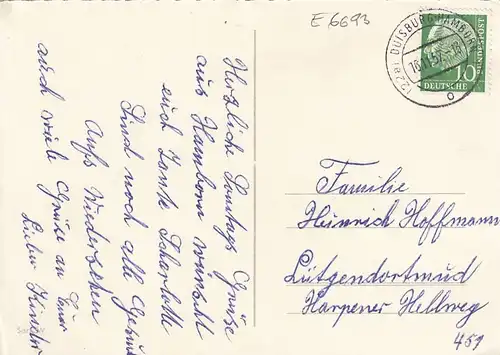 E 6693
(22a) DUISBURG-HAMBORN
16.11.57.-18
DEUTSCHE
BUNDESPOST
10
Herzliche Sonntags Grüße
aus Hamborn wünscht
euch Tante Scharlotte
Sind noch alle Gesund
Aufs Wiedersehen
auch viele Grüße an Eure
Lieben Kinder
Familie
Heinrich Hoffmann
Lütgendortmud
Harpener Hellweg
459